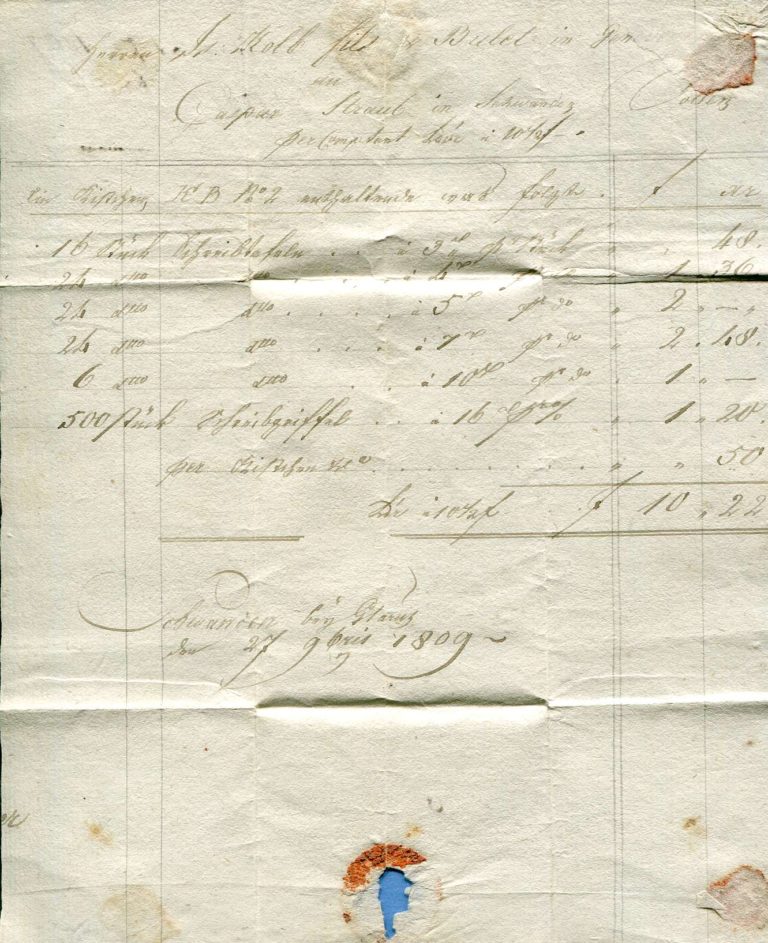 Herren J. Kolb fils & Butot in
an
Caspar Straub in Schwanden
per Comptant à 10 f
Ein Kistchen K B No 2 enthaltende was folgt f xr
16 Stück Schreibtafeln . . . à 3 xr pr Stück " , 48.
24 dtto dtto . . . . à 4 xr 1 . 36
24 dtto dtto . . . . à 5 xr pr do " 2 " — "
24 dtto dtto . . . . à 7 xr pr do " 2 . 48.
6 dtto dtto . . . à 10 xr pr do . 1 " —
500 Stück Schreibgriffel . . à 16 xr pr % " 1 " 20.
per Kistchen . . . . . . . " " 50
à 10 f f 10 " 22
Schwanden bey Glarus
den 27 9bris 1809